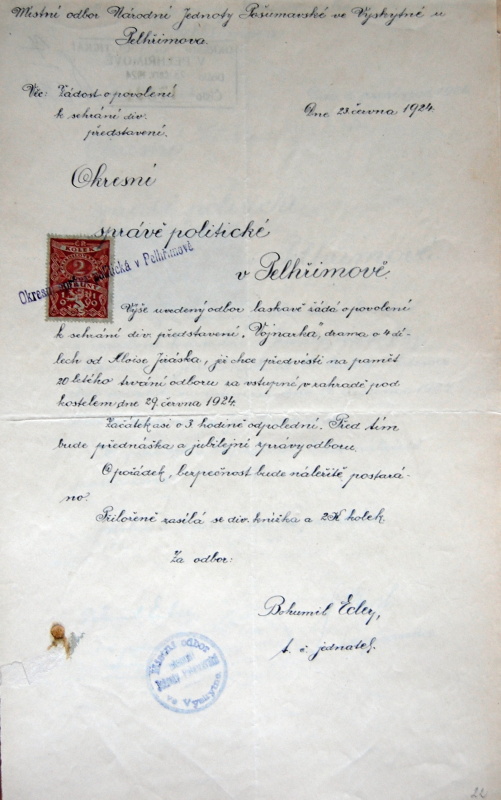 Místní odbor Národní Jednoty Pošumavské ve Vyskytné u
Pelhřimova.
Věc: Žádost o povolení
k sehrání div.
představení.
Dne 23. června 1924.
Okresní
správě politické
v Pelhřimově.
KOLEK
2
KORUNY
Okresní správa politická v Pelhřimově
Výše uvedený odbor laskavě žádá o povolení
k sehrání div. představení „Vojnarka", drama o 4 dí-
lech od Aloise Jiráska, jež chce předvésti na paměť
20 letého trvání odboru za vstupné v zahradě pod
kostelem dne 29. června 1924.
Začátek asi o 3 hodině odpolední. Před tím
bude přednáška a jubilejní zprávy odboru.
O pořádek, bezpečnost bude náležitě postará-
no.
Přiloženě zasílá se div. knížka a 2K kolek.
Za odbor:
Bohumil Ecler,
t. č. jednatel.
Místní odbor
Národní
Jednoty Pošumavské
ve Vyskytné
22